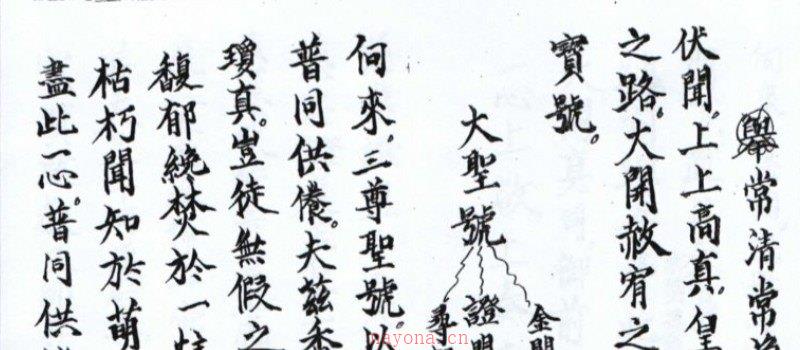 舉常清常
伏聞。上上高真。皇
之路。大開赦宥之
寶號。
大聖號
金闕
證明
尋
何來。三尊聖號。以
普同供養。夫茲香
瓊真。豈徒無假之
馥郁繞焚於一炷
枯朽聞知於萌
盡此一心。普同供
nayona.cn